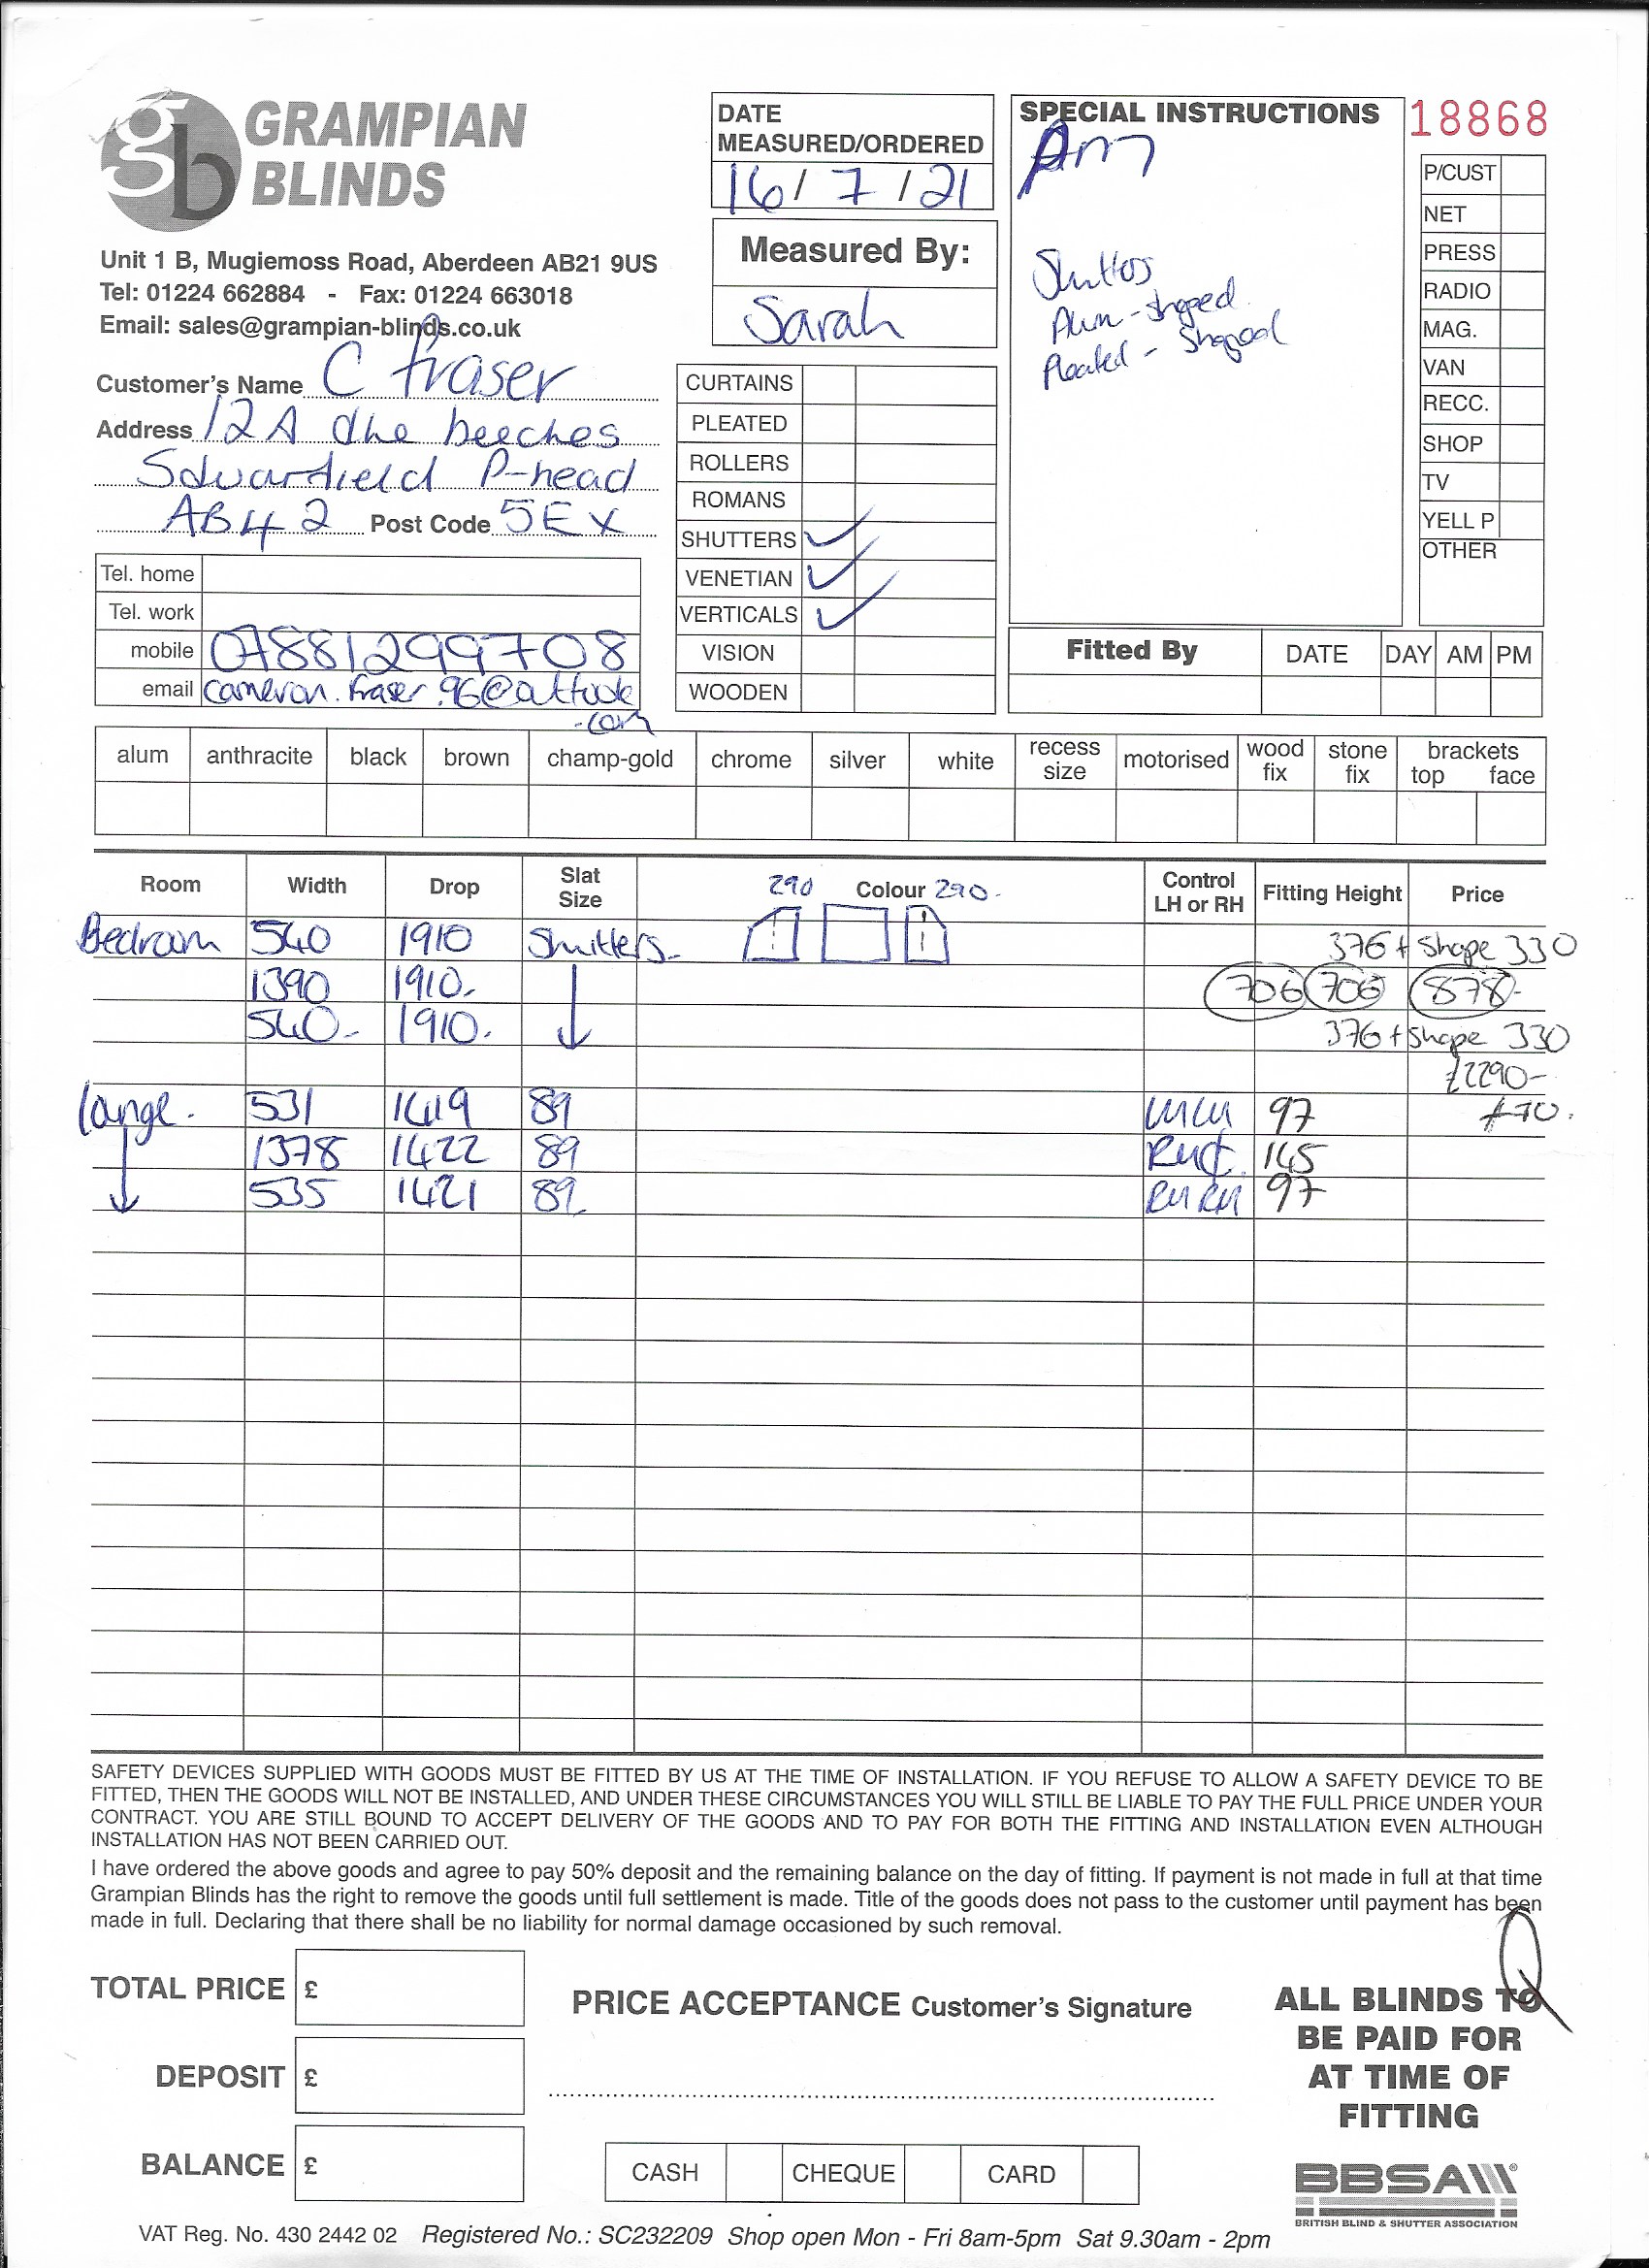 GRAMPIAN
BLINDS
Unit 1 B, Mugiemoss Road, Aberdeen AB21 9US
Tel: 01224 662884 - Fax: 01224 663018
Email: sales@grampian-blinds.co.uk
DATE
MEASURED/ORDERED
16/7/21
Measured By:
Sarah
SPECIAL INSTRUCTIONS
Am
Shutters
Alum - shaped
Pleated - Shaped
18868
P/CUST
NET
PRESS
RADIO
MAG.
VAN
RECC.
SHOP
TV
YELL P
OTHER
Customer's Name C Fraser
Address 12A the beeches
P-head
AB42 Post Code 5EX
Tel. home
Tel. work
mobile 07881299708
email cameron.fraser.96@outlook
.com
CURTAINS
PLEATED
ROLLERS
ROMANS
SHUTTERS ✓
VENETIAN ✓
VERTICALS ✓
VISION
WOODEN
Fitted By DATE DAY AM PM
alum anthracite black brown champ-gold chrome silver white recess size motorised wood fix stone fix brackets top face
Room Width Drop Slat Size 290 Colour 290- Control LH or RH Fitting Height Price
Bedroom 540 1910 Shutters- 376 + Shape 330
1390 1910. 706 706 878-
540- 1910. 376 + Shape 330
£2290-
Lounge. 531 1419 89 LHLH 97 £70.
1378 1422 89 145
535 1421 89 RHRH 97
SAFETY DEVICES SUPPLIED WITH GOODS MUST BE FITTED BY US AT THE TIME OF INSTALLATION. IF YOU REFUSE TO ALLOW A SAFETY DEVICE TO BE
FITTED, THEN THE GOODS WILL NOT BE INSTALLED, AND UNDER THESE CIRCUMSTANCES YOU WILL STILL BE LIABLE TO PAY THE FULL PRICE UNDER YOUR
CONTRACT. YOU ARE STILL BOUND TO ACCEPT DELIVERY OF THE GOODS AND TO PAY FOR BOTH THE FITTING AND INSTALLATION EVEN ALTHOUGH
INSTALLATION HAS NOT BEEN CARRIED OUT.
I have ordered the above goods and agree to pay 50% deposit and the remaining balance on the day of fitting. If payment is not made in full at that time
Grampian Blinds has the right to remove the goods until full settlement is made. Title of the goods does not pass to the customer until payment has been
made in full. Declaring that there shall be no liability for normal damage occasioned by such removal.
Q
TOTAL PRICE £
DEPOSIT £
BALANCE £
PRICE ACCEPTANCE Customer's Signature
CASH CHEQUE CARD
ALL BLINDS TO
BE PAID FOR
AT TIME OF
FITTING
BBSA
BRITISH BLIND & SHUTTER ASSOCIATION
VAT Reg. No. 430 2442 02 Registered No.: SC232209 Shop open Mon - Fri 8am-5pm Sat 9.30am - 2pm